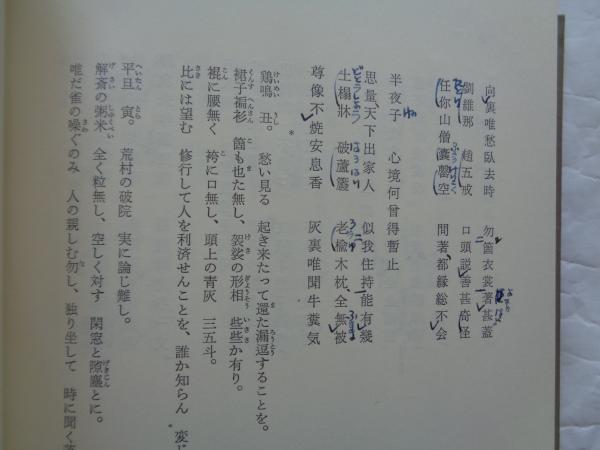 向裏唯愁臥去時　勿箇衣裳著甚蓋
劉維那　趙五戒　口頭説善甚奇怪
任你山僧囊罄空　問著都縁総不会
半夜子　心境何曾得暫止
思量天下出家人　似我住持能有幾
土榻牀　破蘆䉬　老楡木枕全無被
尊像不焼安息香　灰裏唯聞牛糞気
＊
鶏鳴　丑。　愁い見る　起き来たって還た漏逗することを。
裙子褊衫　箇も也た無し、袈裟の形相　些些か有り。
裩に腰無く　袴に口無し、頭上の青灰　三五斗。
比には望む　修行して人を利済せんことを、誰か知らん　変じ
平旦　寅。　荒村の破院　実に論じ難し。
解斎の粥米　全く粒無し、空しく対す　閑窓と隙塵とに。
唯だ雀の噪ぐのみ　人の親しむ勿し、独り坐して　時に聞く